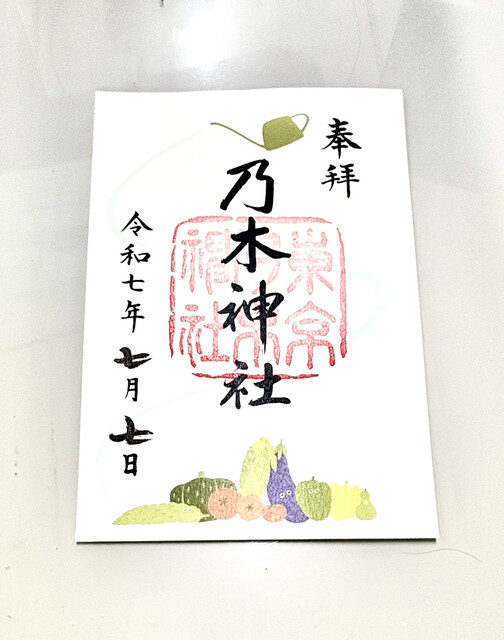 奉拝
乃木神社
東京乃木神社
令和七年七月七日